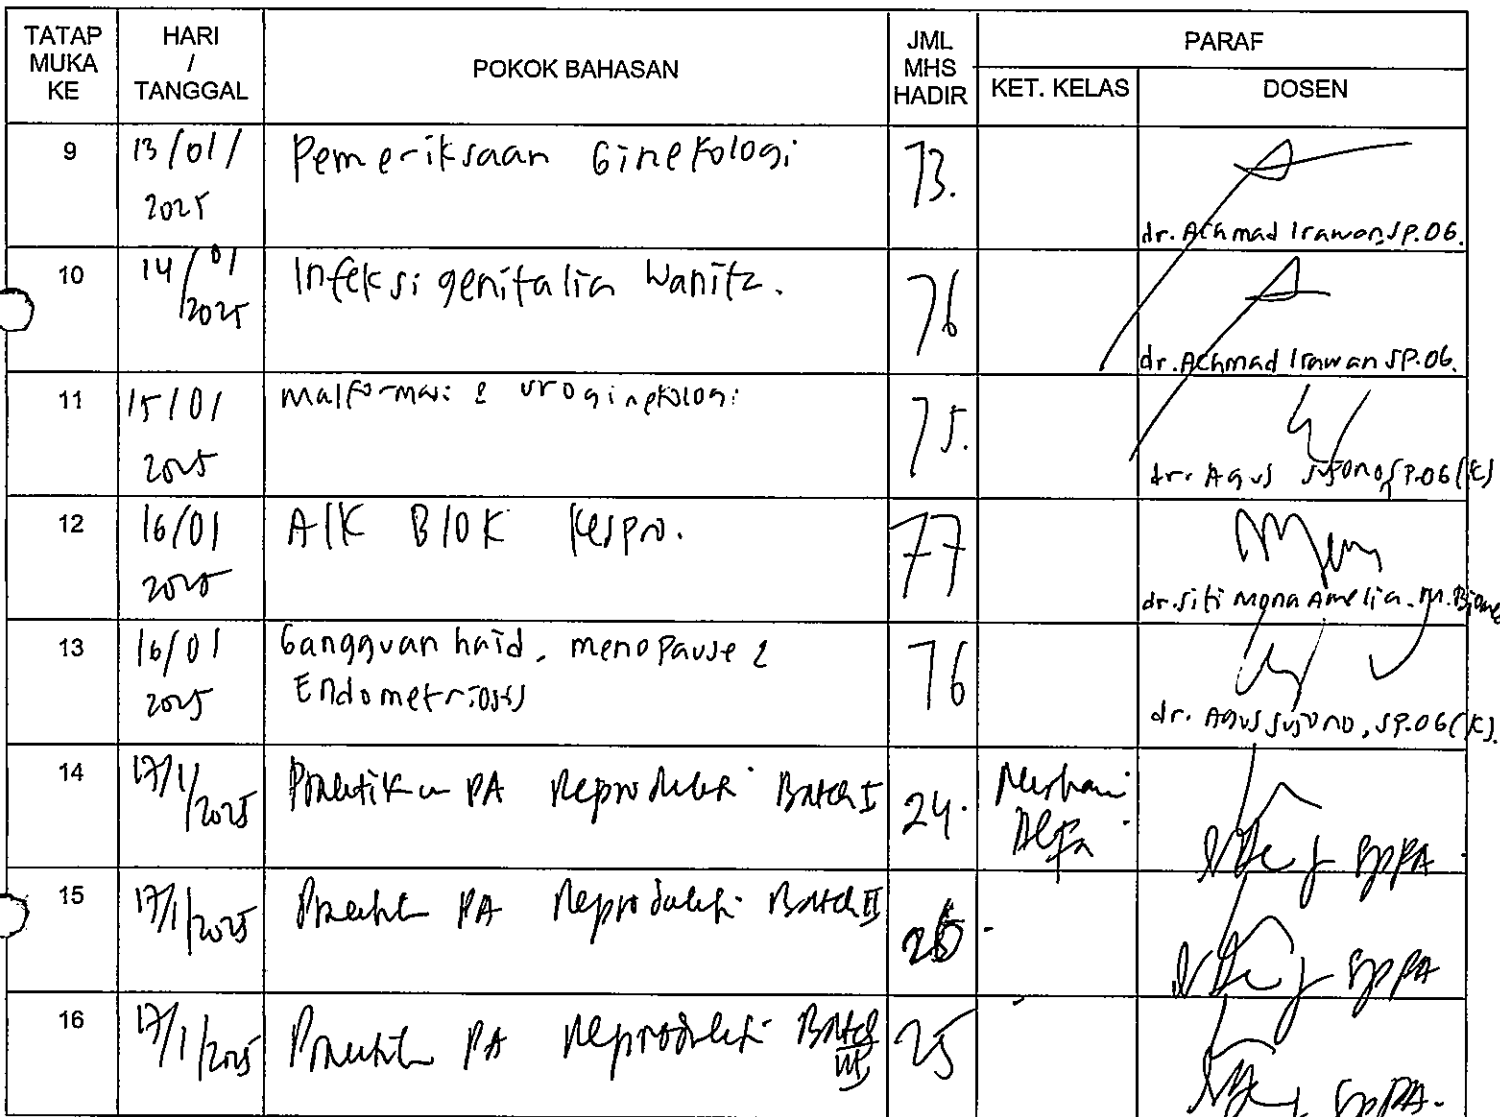 TATAP MUKA KE HARI / TANGGAL POKOK BAHASAN JML MHS HADIR PARAF
KET. KELAS DOSEN
9 13/01/2025 Pemeriksaan Ginekologi 73. dr. Achmad Irawan, SP.OG.
10 14/01/2025 Infeksi genitalia Wanita. 76 dr. Achmad Irawan SP.OG.
11 15/01 2025 malformasi & uroginekologi 75. dr. Agus Sujono, SP.OG(K)
12 16/01 2025 AIK BlOK Kespro. 77 dr. Siti Mona Amelia. M.Biome
13 16/01 2025 Gangguan haid, menopause & 76 dr. Agus Sujono, SP.OG(K).
Endometriosis
14 17/1/2025 PA Reproduksi Batch I 24.
15 17/1/2025 PA Reproduksi Batch II
16 17/1/2025 PA Reproduksi Batch III 25